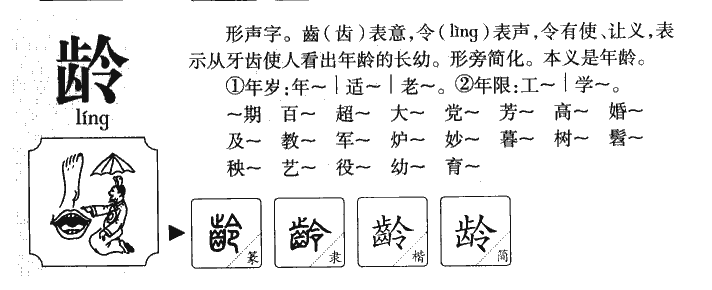 龄
líng
形声字。齒(齿)表意,令(lìng)表声,令有使、让义,表
示从牙齿使人看出年龄的长幼。形旁简化。本义是年龄。
①年岁:年～|适～|老～。②年限:工～|学～。
～期 百～ 超～ 大～ 党～ 芳～ 高～ 婚～
及～ 教～ 军～ 炉～ 妙～ 暮～ 树～ 髫～
秧～ 艺～ 役～ 幼～ 育～
齡 篆 齡 隶 齡 楷 龄 简